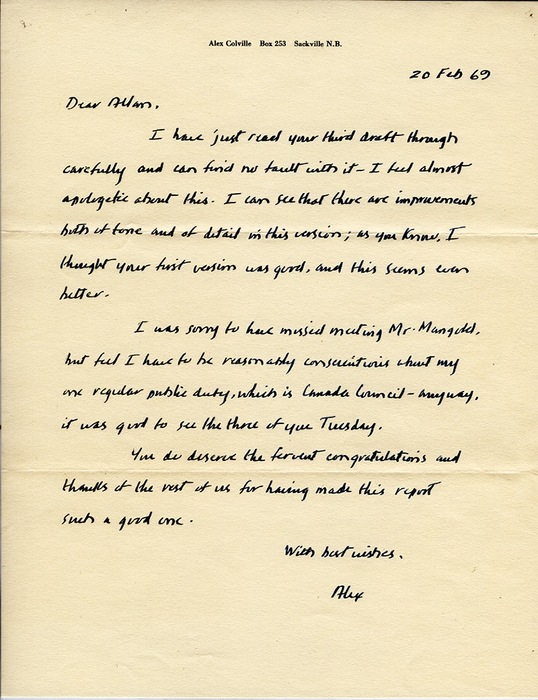 Alex Colville Box 253 Sackville N.B.
20 Feb 69
Dear Allan,
I have just read your third draft through
carefully and can find no fault with it - I feel almost
apologetic about this. I can see that there are improvements
both of tone and of detail in this version; as you know, I
thought your first version was good, and this seems even
better.
I was sorry to have missed meeting Mr. Mangold,
but feel I have to be reasonably conscientious about my
one regular public duty, which is Canada Council - anyway,
it was good to see the three of you Tuesday.
You do deserve the fervent congratulations and
thanks of the rest of us for having made this report
such a good one.
With best wishes,
Alex